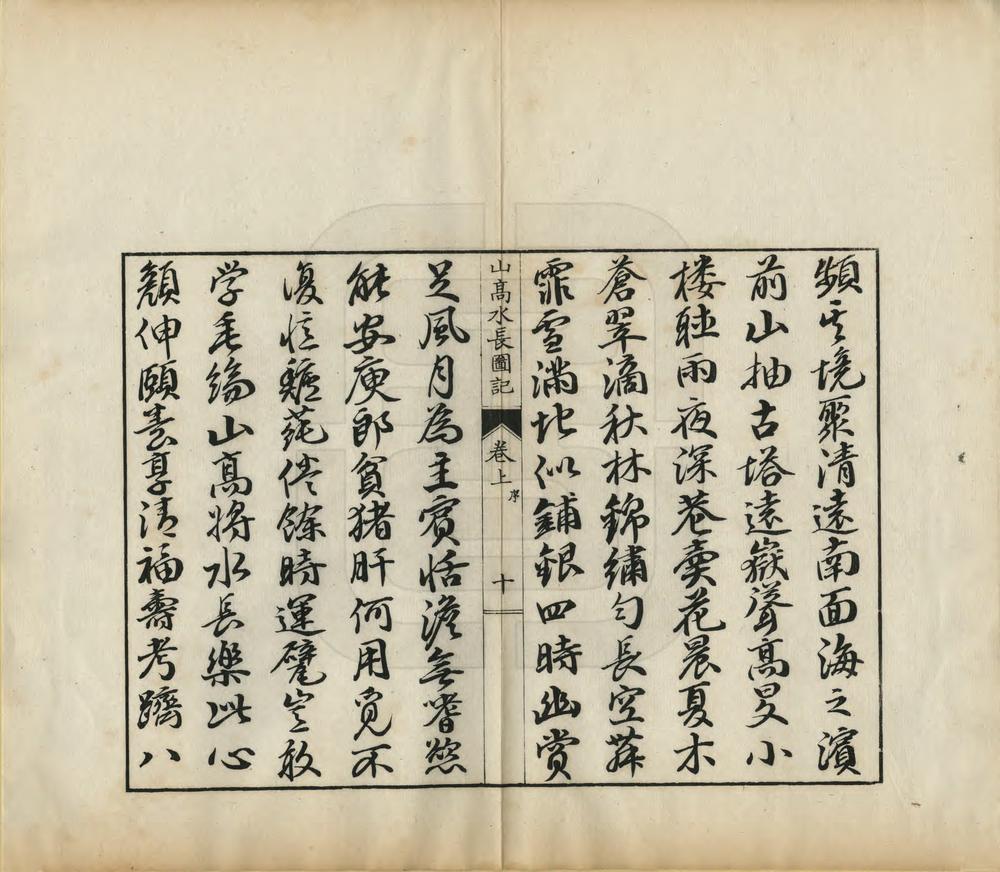 頻其境聚清遠南面海之濱
前山抽古塔遠嶽聳高旻小
楼聴雨夜深巷賣花晨夏木
蒼翠滴秋林錦繡勻長空舞
霏雪滿地似鋪銀四時幽賞
山高水長圖記 卷上 序 十
足風月為主賓恬澹無嗜慾
能安庾郎貧猪肝何用覓不
復憶鱸蒓倦餘時運甓豈敢
学垂綸山高將水長樂此心
顏伸頤養享清福壽考躋八